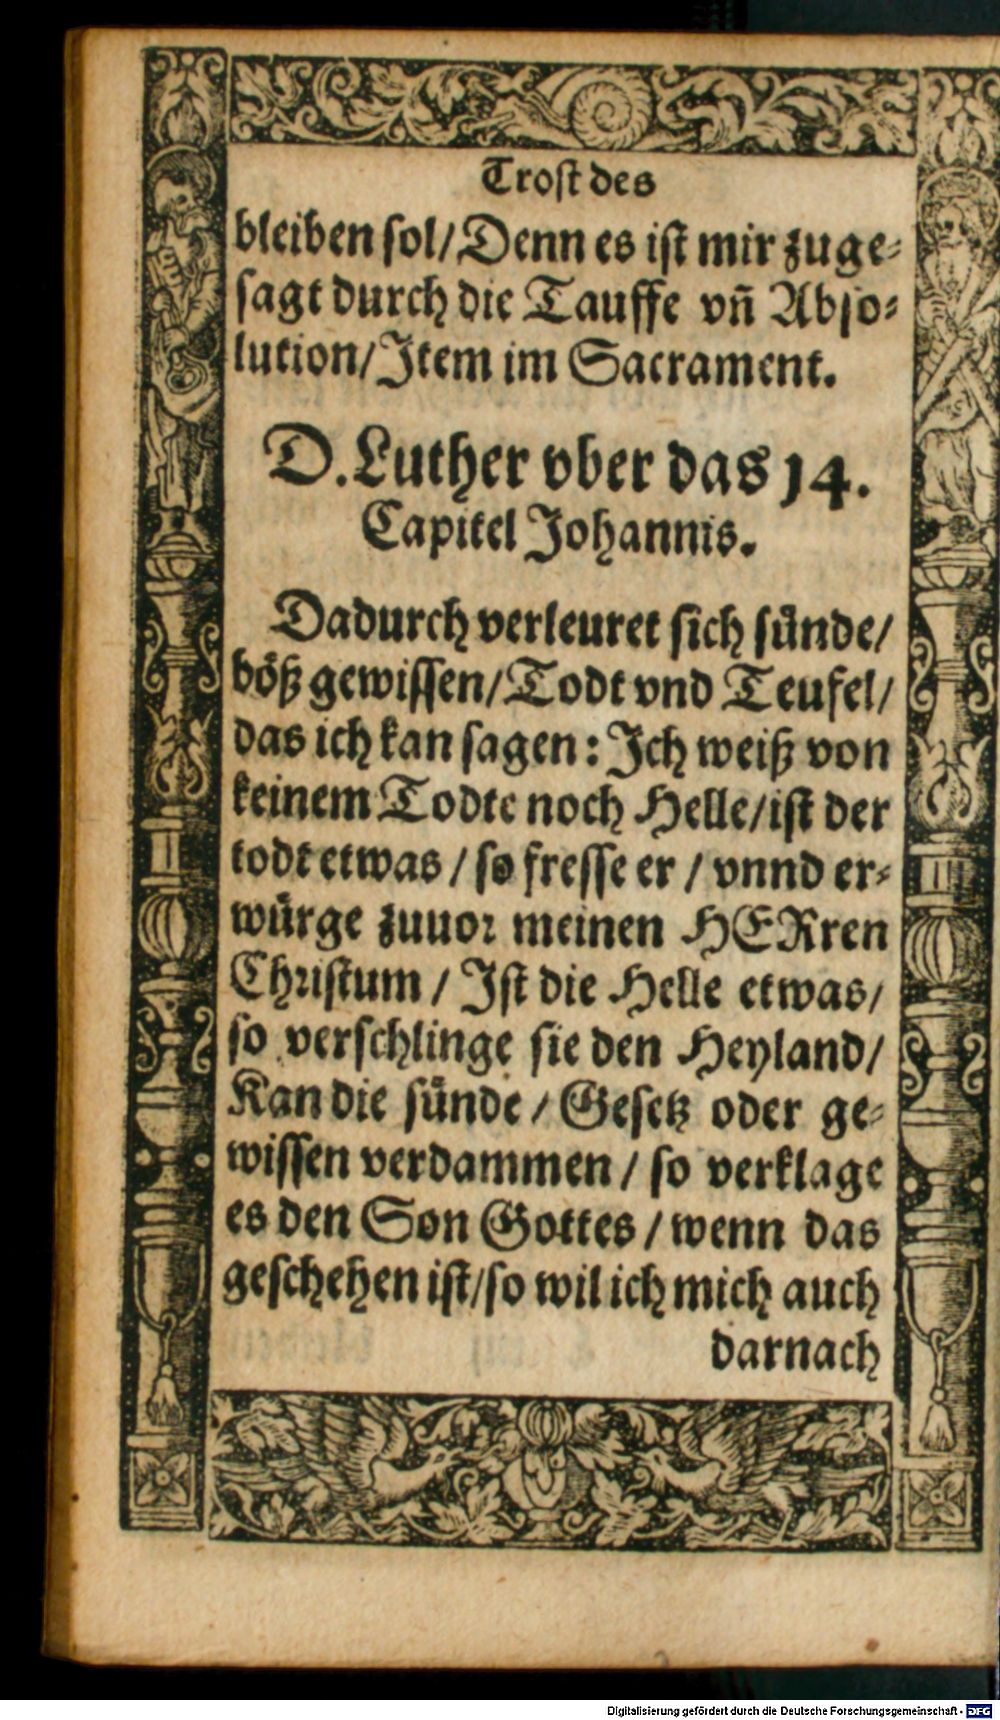 Trost des
bleiben sol/Denn es ist mir zuge⸗
sagt durch die Tauffe vn̄ Abso⸗
lution/Item im Sacrament.
D. Luther vber das 14.
Capitel Johannis.
Dadurch verleuret sich sünde/
böß gewissen/Todt vnd Teufel/
das ich kan sagen: Ich weiß von
keinem Todte noch Helle/ist der
todt etwas / so fresse er / vnnd er⸗
würge zuuor meinen HERren
Christum / Ist die Helle etwas/
so verschlinge sie den Heyland/
Kan die sünde / Gesetz oder ge⸗
wissen verdammen / so verklage
es den Son Gottes / wenn das
geschehen ist/so wil ich mich auch
darnach
Digitalisierung gefördert durch die Deutsche Forschungsgemeinschaft - DFG